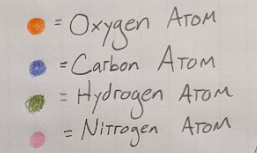 = Oxygen Atom
= Carbon Atom
= Hydrogen Atom
= Nitrogen Atom